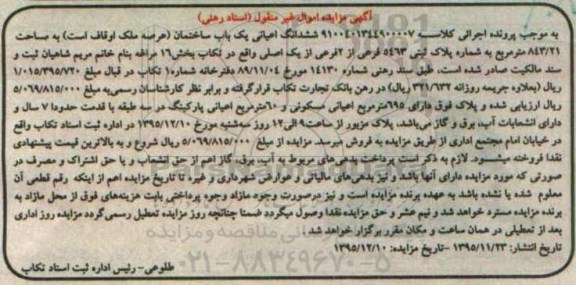 آگهی مزایده اموال غیر منقول (اسناد رهنی)
به موجب پرونده اجرائی کلاسه ۹۱۰۰۴۰۱۳۴۴۹۰۰۰۰۷ ششدانگ اعیانی یک باب ساختمان (عرصه ملک اوقاف است) به مساحت
۸۴۳/۲۱ مترمربع به شماره پلاک ثبتی ۵۴۶۳ فرعی از ۲فرعی از یک اصلی واقع در تکاب بخش۱۶ مراغه بنام خانم مریم شاهیان ثبت و
سند مالکیت صادر شده است، طبق سند رهنی شماره ۱۴۱۳۰ مورخ ۸۹/۱۱/۰۴ دفترخانه شماره۱ تکاب در قبال مبلغ ۱/۰۱۵/۳۹۵/۷۲۰
ریال (بعلاوه جریمه روزانه ۳۲۱/۶۳۲ ریال) در رهن بانک تجارت تکاب قرارگرفته و برابر نظر کارشناسان رسمی‌به مبلغ ۵/۰۶۹/۸۱۵/۰۰۰
ریال ارزیابی شده و پلاک فوق دارای ۶۹۵مترمربع اعیانی مسکونی و ۶۰مترمربع اعیانی پارکینگ در سه طبقه با قدمت حدودا ۷ سال و
دارای انشعابات آب، برق و گاز می‌باشد، پلاک مزبور از ساعت۹ الی۱۲ روز سه‌شنبه مورخ ۱۳۹۵/۱۲/۱۰ در اداره ثبت اسناد تکاب واقع
در خیابان امام مجتمع اداری از طریق مزایده به فروش میرسد. مزایده از مبلغ ۵/۰۶۹/۸۱۵/۰۰۰ ریال شروع و به بالاترین قیمت پیشنهادی
نقدا فروخته میشــود. لازم به ذکر است پرداخت بدهی‌های مربوط به آب، برق، گاز اعم از حق انشعاب و یا حق اشتراک و مصرف در
صورتی که مورد مزایده دارای آنها باشد ونیز بدهی‌های مالیاتی و عوارض شهرداری و غیره تا تاریخ مزایده اعم از اینکه رقم قطعی آن
معلوم شده یا نشده باشد به عهده برنده مزایده است و نیز درصورت وجود مازاد وجوه پرداختی بابت هزینه‌های فوق از محل مازاد به
برنده مزایده مسترد خواهد شد و نیم عشر و حق مزایده نقدا وصول میگردد ضمنا چنانچه روز مزایده تعطیل رسمی گردد مزایده روز اداری
بعد از تعطیلی در همان ساعت و مکان مقرر برگزار خواهد شد.
تاریخ انتشار: ۱۳۹۵/۱۱/۲۳ -تاریخ مزایده: ۱۳۹۵/۱۲/۱۰
طلوعی- رئیس اداره ثبت اسناد تکاب
۰۲۱-۸۸۳۴۹۶۷۰-۵